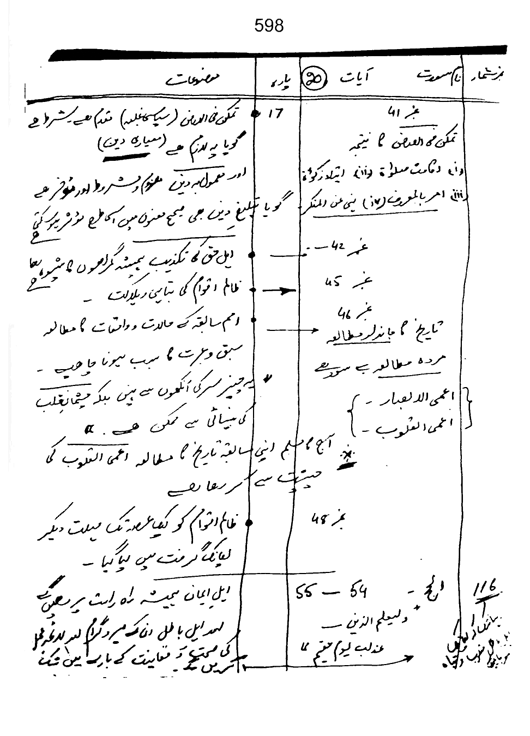 598
نمبر شمار نام سورت آیات پارہ موضوعات
نمبر 41 17 تمکن فی الارض (سیاسی غلبہ) مقدم ہے شرط ہے
تمکن فی الارض کا نتیجہ گویا یہ لازم ہے (معیاری دین)
(i) اقامت صلوٰۃ (ii) ایتاء زکوٰۃ اور
(iii) امر بالمعروف (iv) نہی عن المنکر گویا تبلیغ دین بھی صحیح معنوں میں اسی طرح مؤثر ہو سکتی ہے
نمبر 42 اہل حق کی تکذیب ہمیشہ گمراہوں کا شیوہ رہا ہے
نمبر 45 ظالم اقوام کی تباہی و ہلاکت -
نمبر 46 امم سابقہ کے حالات و واقعات کا مطالعہ
تاریخ کا جاندار مطالعہ سبق و عبرت کا سبب ہونا چاہیے -
مردہ مطالعہ بے سود ہے
اعمی الابصار - یہ چیز سر کی آنکھوں سے نہیں بلکہ چشمان قلب
اعمی القلوب - کی بینائی سے ممکن ہے .
آج کا مسلم اپنی سابقہ تاریخ کا مطالعہ اعمی القلوب کی
حیثیت سے کر رہا ہے
نمبر 48 ظالم اقوام کو ایک عرصہ تک مہلت دیکر
اچانک گرفت میں لیا گیا -
116 الحج - 54 – 55 اہل ایمان ہمیشہ راہ راست پر
ولیعلم الذین - اور اہل باطل
عذاب یوم عقیم کی کے بارے میں شک